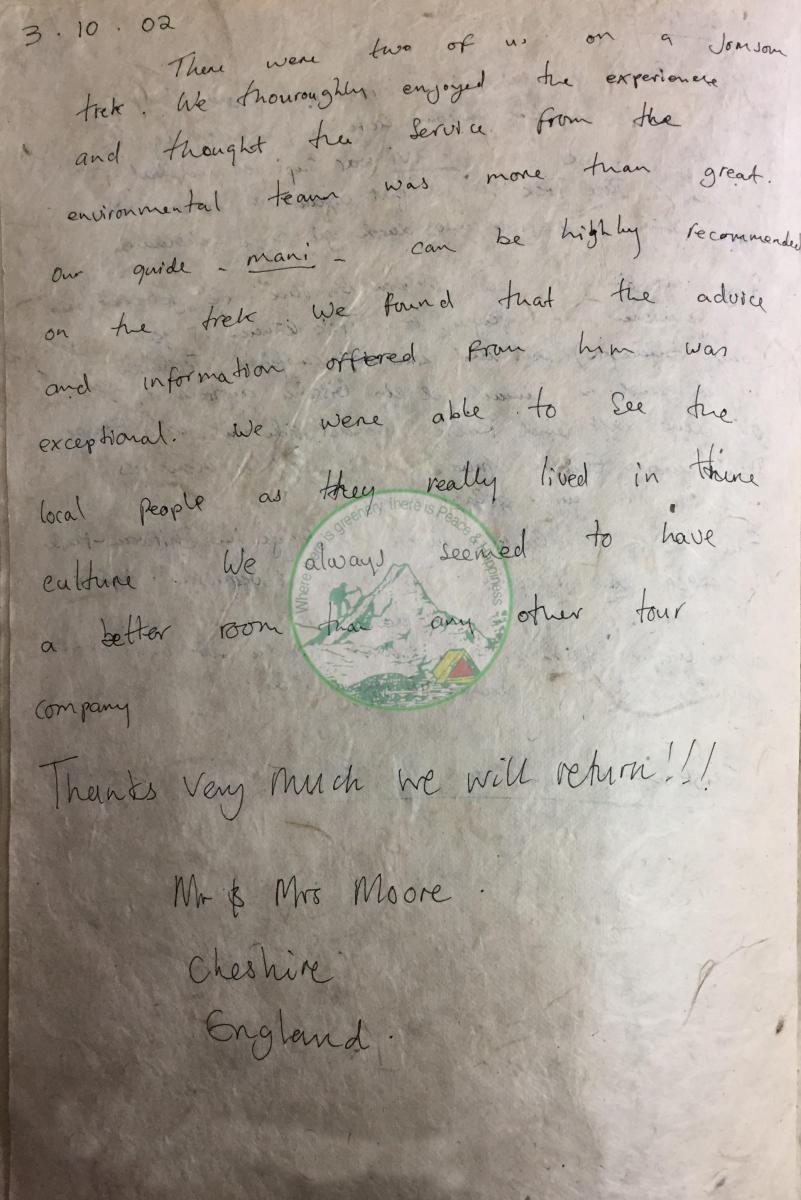 3.10.02
There were two of us on a Jomsom
trek. We thouroughly enjoyed the experience
and thought the service from the
environmental team was more than great.
Our guide - mani - can be highly recommended
on the trek. We found that the advice
and information offered from him was
exceptional. We were able to see the
local people as they really lived in there
culture. We always seemed to have
a better room than any other tour
company
Thanks very much we will return!!!
Mr & Mrs Moore.
Cheshire
England.
Where there is greenery, there is Peace & Happiness